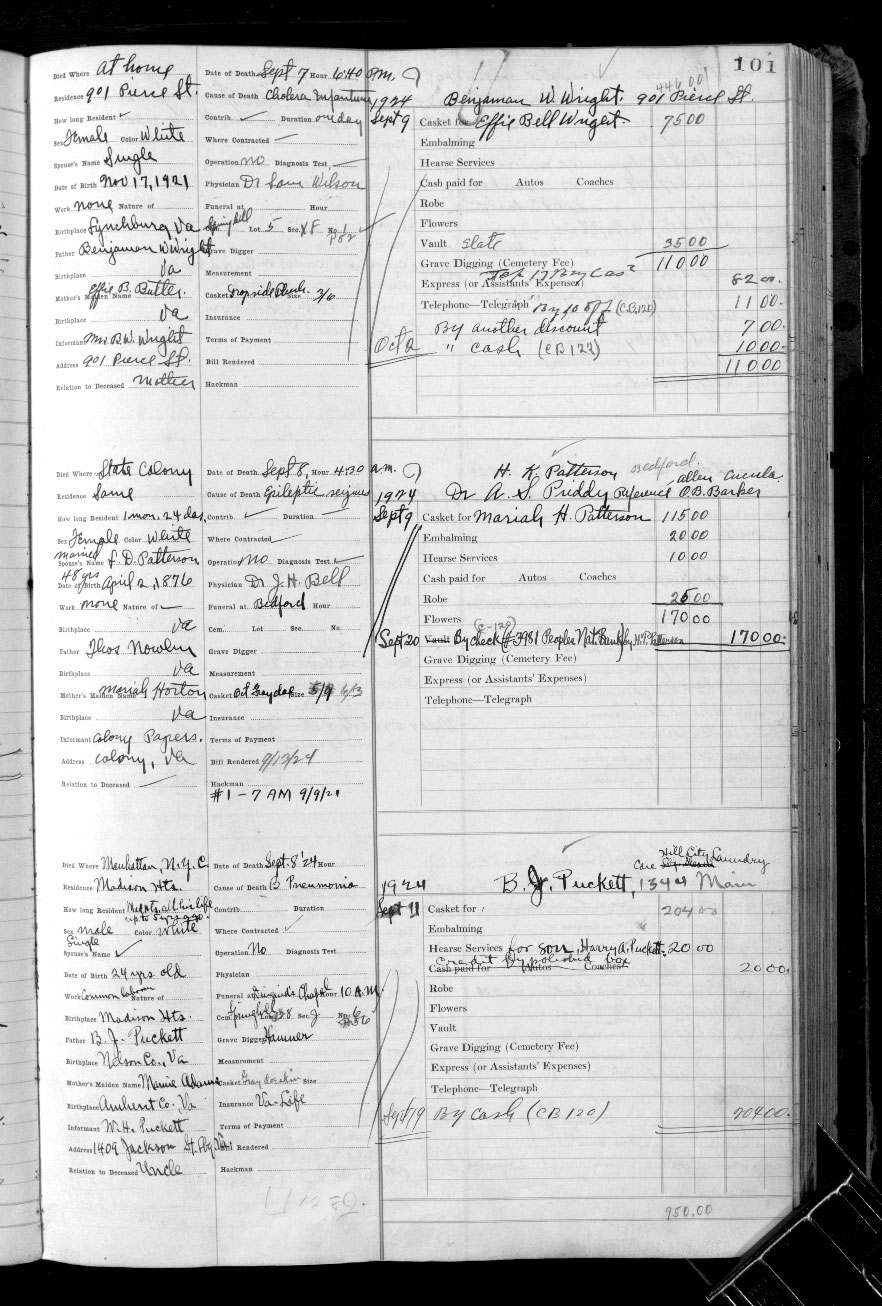 101
446 00
Died Where at home
Residence 901 Pierce St.
How long Resident ✓
Sex Female Color White
Spouse's Name Single
Date of Birth Nov 17, 1921
Work none Nature of
Birthplace Lynchburg, Va
Father Benjaman W Wright
Birthplace Va
Mother's Maiden Name Effie B. Butler
Birthplace Va
Informant Mrs. B. W. Wright
Address 901 Pierce St.
Relation to Deceased Mother
Date of Death Sept 7 Hour 6:40 P.M.
Cause of Death Cholera Infantum
Contrib. ✓ Duration one day
Where Contracted
Operation no Diagnosis Test
Physician Dr Sam Wilson
Funeral at Hour
Spring hill Lot 5 Sec. No. 1
Grave Digger
Measurement
Casket Size 3/6
Insurance
Terms of Payment
Bill Rendered
Hackman
1924 Benjaman W. Wright. 901 Pierce St.
Sept 9 Casket for Effie Bell Wright. 75 00
Embalming
Hearse Services
Cash paid for Autos Coaches
Robe
Flowers
Vault Slate 35 00
Grave Digging (Cemetery Fee) 110 00
Express (or Assistants' Expenses) 82 00
Telephone—Telegraph By 10% off (CB120) 11 00
By another discount 7 00
Oct 2 " cash (CB122) 10 00
110 00
Died Where State Colony
Residence Same
How long Resident 1 mon. 24 das.
Sex Female Color White
married
Spouse's Name J. D. Patterson
48 yrs
Date of Birth April 2, 1876
Work none Nature of
Birthplace Va
Father Thos Nowlin
Birthplace Va
Mother's Maiden Name Mariah Horton
Birthplace Va
Informant Colony Papers.
Address Colony, Va
Relation to Deceased
Date of Death Sept 8, Hour 4:30 a.m.
Cause of Death Epileptic seizures
Contrib. ✓ Duration
Where Contracted
Operation No Diagnosis Test
Physician Dr J. H. Bell
Funeral at Bedford Hour
Cem. Lot Sec. No.
Grave Digger
Measurement
Casket Oct Size 5/9 6/3
Insurance
Terms of Payment
Bill Rendered 9/12/24
Hackman
#1 – 7 AM 9/9/21
H. K. Patterson Bedford.
1924 Dr A. S. Priddy Reference O. B. Barker
Sept 9 Casket for Mariah H. Patterson 115 00
Embalming 20 00
Hearse Services 10 00
Cash paid for Autos Coaches
Robe 25 00
Flowers 170 00
(C-120)
Sept 20 Vault By check #3981 Peoples Nat. Bank by H. K. Patterson 170 00
Grave Digging (Cemetery Fee)
Express (or Assistants' Expenses)
Telephone—Telegraph
Died Where Manhattan, N.Y.C
Residence Madison Hts.
How long Resident M. Hts. all his life
up to 5 yrs ago.
Sex male Color White
Single
Spouse's Name ✓
Date of Birth 24 yrs old
Work Common laborer Nature of
Birthplace Madison Hts.
Father B. J. Puckett
Birthplace Nelson Co., Va
Mother's Maiden Name Mamie Adams
Birthplace Amherst Co., Va
Informant W. H. Puckett
Address 1409 Jackson St. Lbg, Va.
Relation to Deceased Uncle
Date of Death Sept. 8 '24 Hour
Cause of Death B Pneumonia
Contrib. Duration
Where Contracted ✓
Operation No Diagnosis Test
Physician
Funeral at Chapel Hour 10 A.M.
Cem. Spring hill Sec. J No. 6
Grave Digger Hammer
Measurement
Casket Gray doeskin Size
Insurance Va-Life
Terms of Payment
Bill Rendered
Hackman
Care Hill City Laundry
1924 B. J. Puckett, 1344 Main
Sept 11 Casket for 204 00
Embalming
Hearse Services for son, Harry A. Puckett. 20 00
Credit by polished box
Cash paid for Autos Coaches 20 00
Robe
Flowers
Vault
Grave Digging (Cemetery Fee)
Express (or Assistants' Expenses)
Telephone—Telegraph
Sept 19 By Cash (CB120) 204 00
950.00